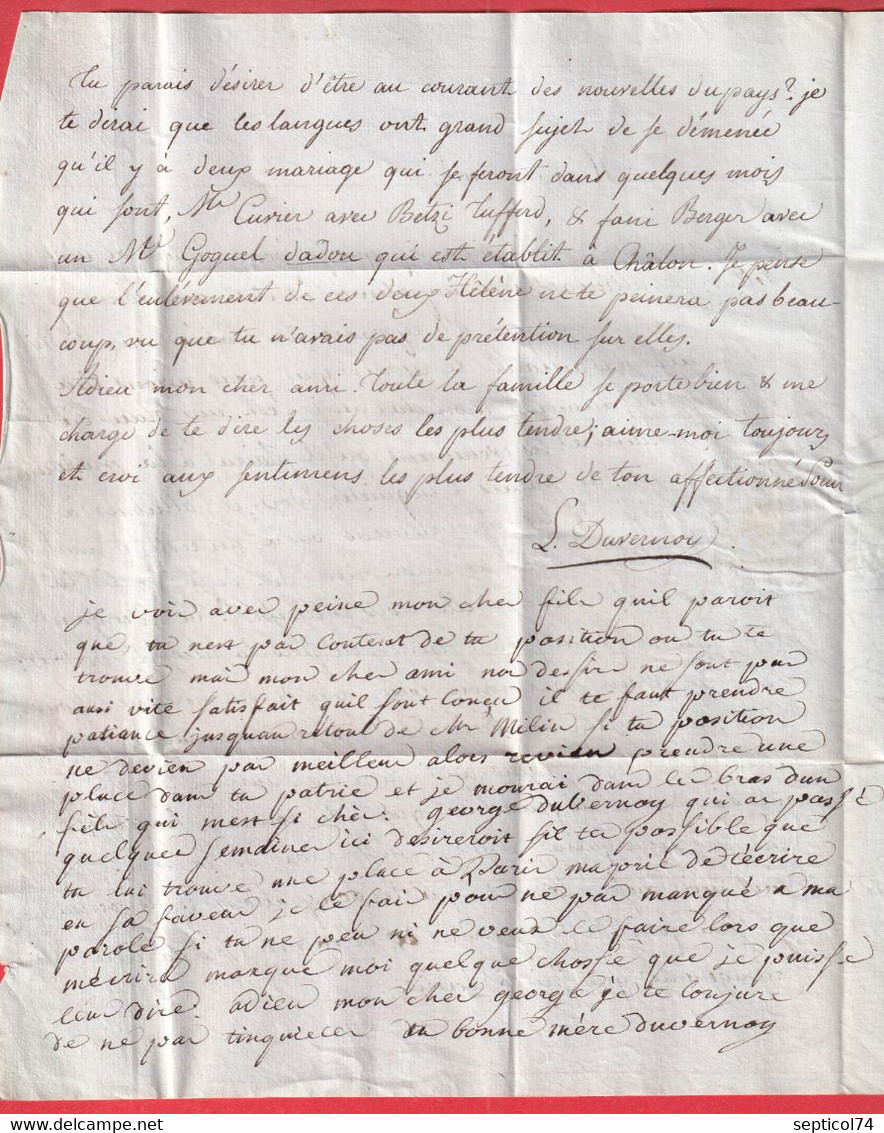 Tu parais désirer d'être au courant des nouvelles du pays? je
te dirai que les langues ont grand sujet de se démenée
qu'il y à deux mariage qui se feront dans quelques mois
qui sont, Mr Cuvier avec Betzi Tufferd, & fani Berger avec
un Mr Goguel dadou qui est établit à Châlon. Je pense
que l'enlévement de ces deux Hélène ne te peinera pas beau-
coup, vu que tu n'avais pas de prétention sur elles.
Adieu mon cher ami. Toute la famille se porte bien & me
charge de te dire les choses les plus tendre; aime-moi toujours
et croi aux sentimens les plus tendre de ton affectionnée Soeur
L. Duvernoy.
je voir avec peine mon cher fils quil paroit
que, tu nest pas contend de ta position ou tu te
trouve mais mon cher ami nos dessir ne sont pas
ausi vite satisfait quil sont conçu il te faut prendre
patiance jusquau retour de Mr Milin si ta position
ne devien pas meilleur alors revien prendre une
place dans ta patrie et je mourai dans les bras dun
fils qui mest si chèr. george duvernoy qui as passé
quelques semaines ici desireroit sil tes possible que
tu lui trouve une place à Paris ma prié de técrire
en sa faveur je le fais pour ne pas manqué a ma
parole si tu ne peu ni ne veux le faire lors que
mécrira marque moi quelque chosse que je puisse
leur dire. adieu mon cher george je te conjure
de ne pas tinquieter ta bonne mére duvernoy
septicol74